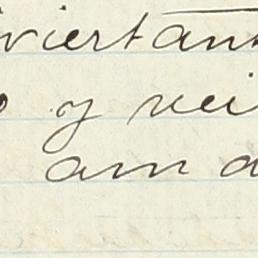 viertan
o y vei
am d